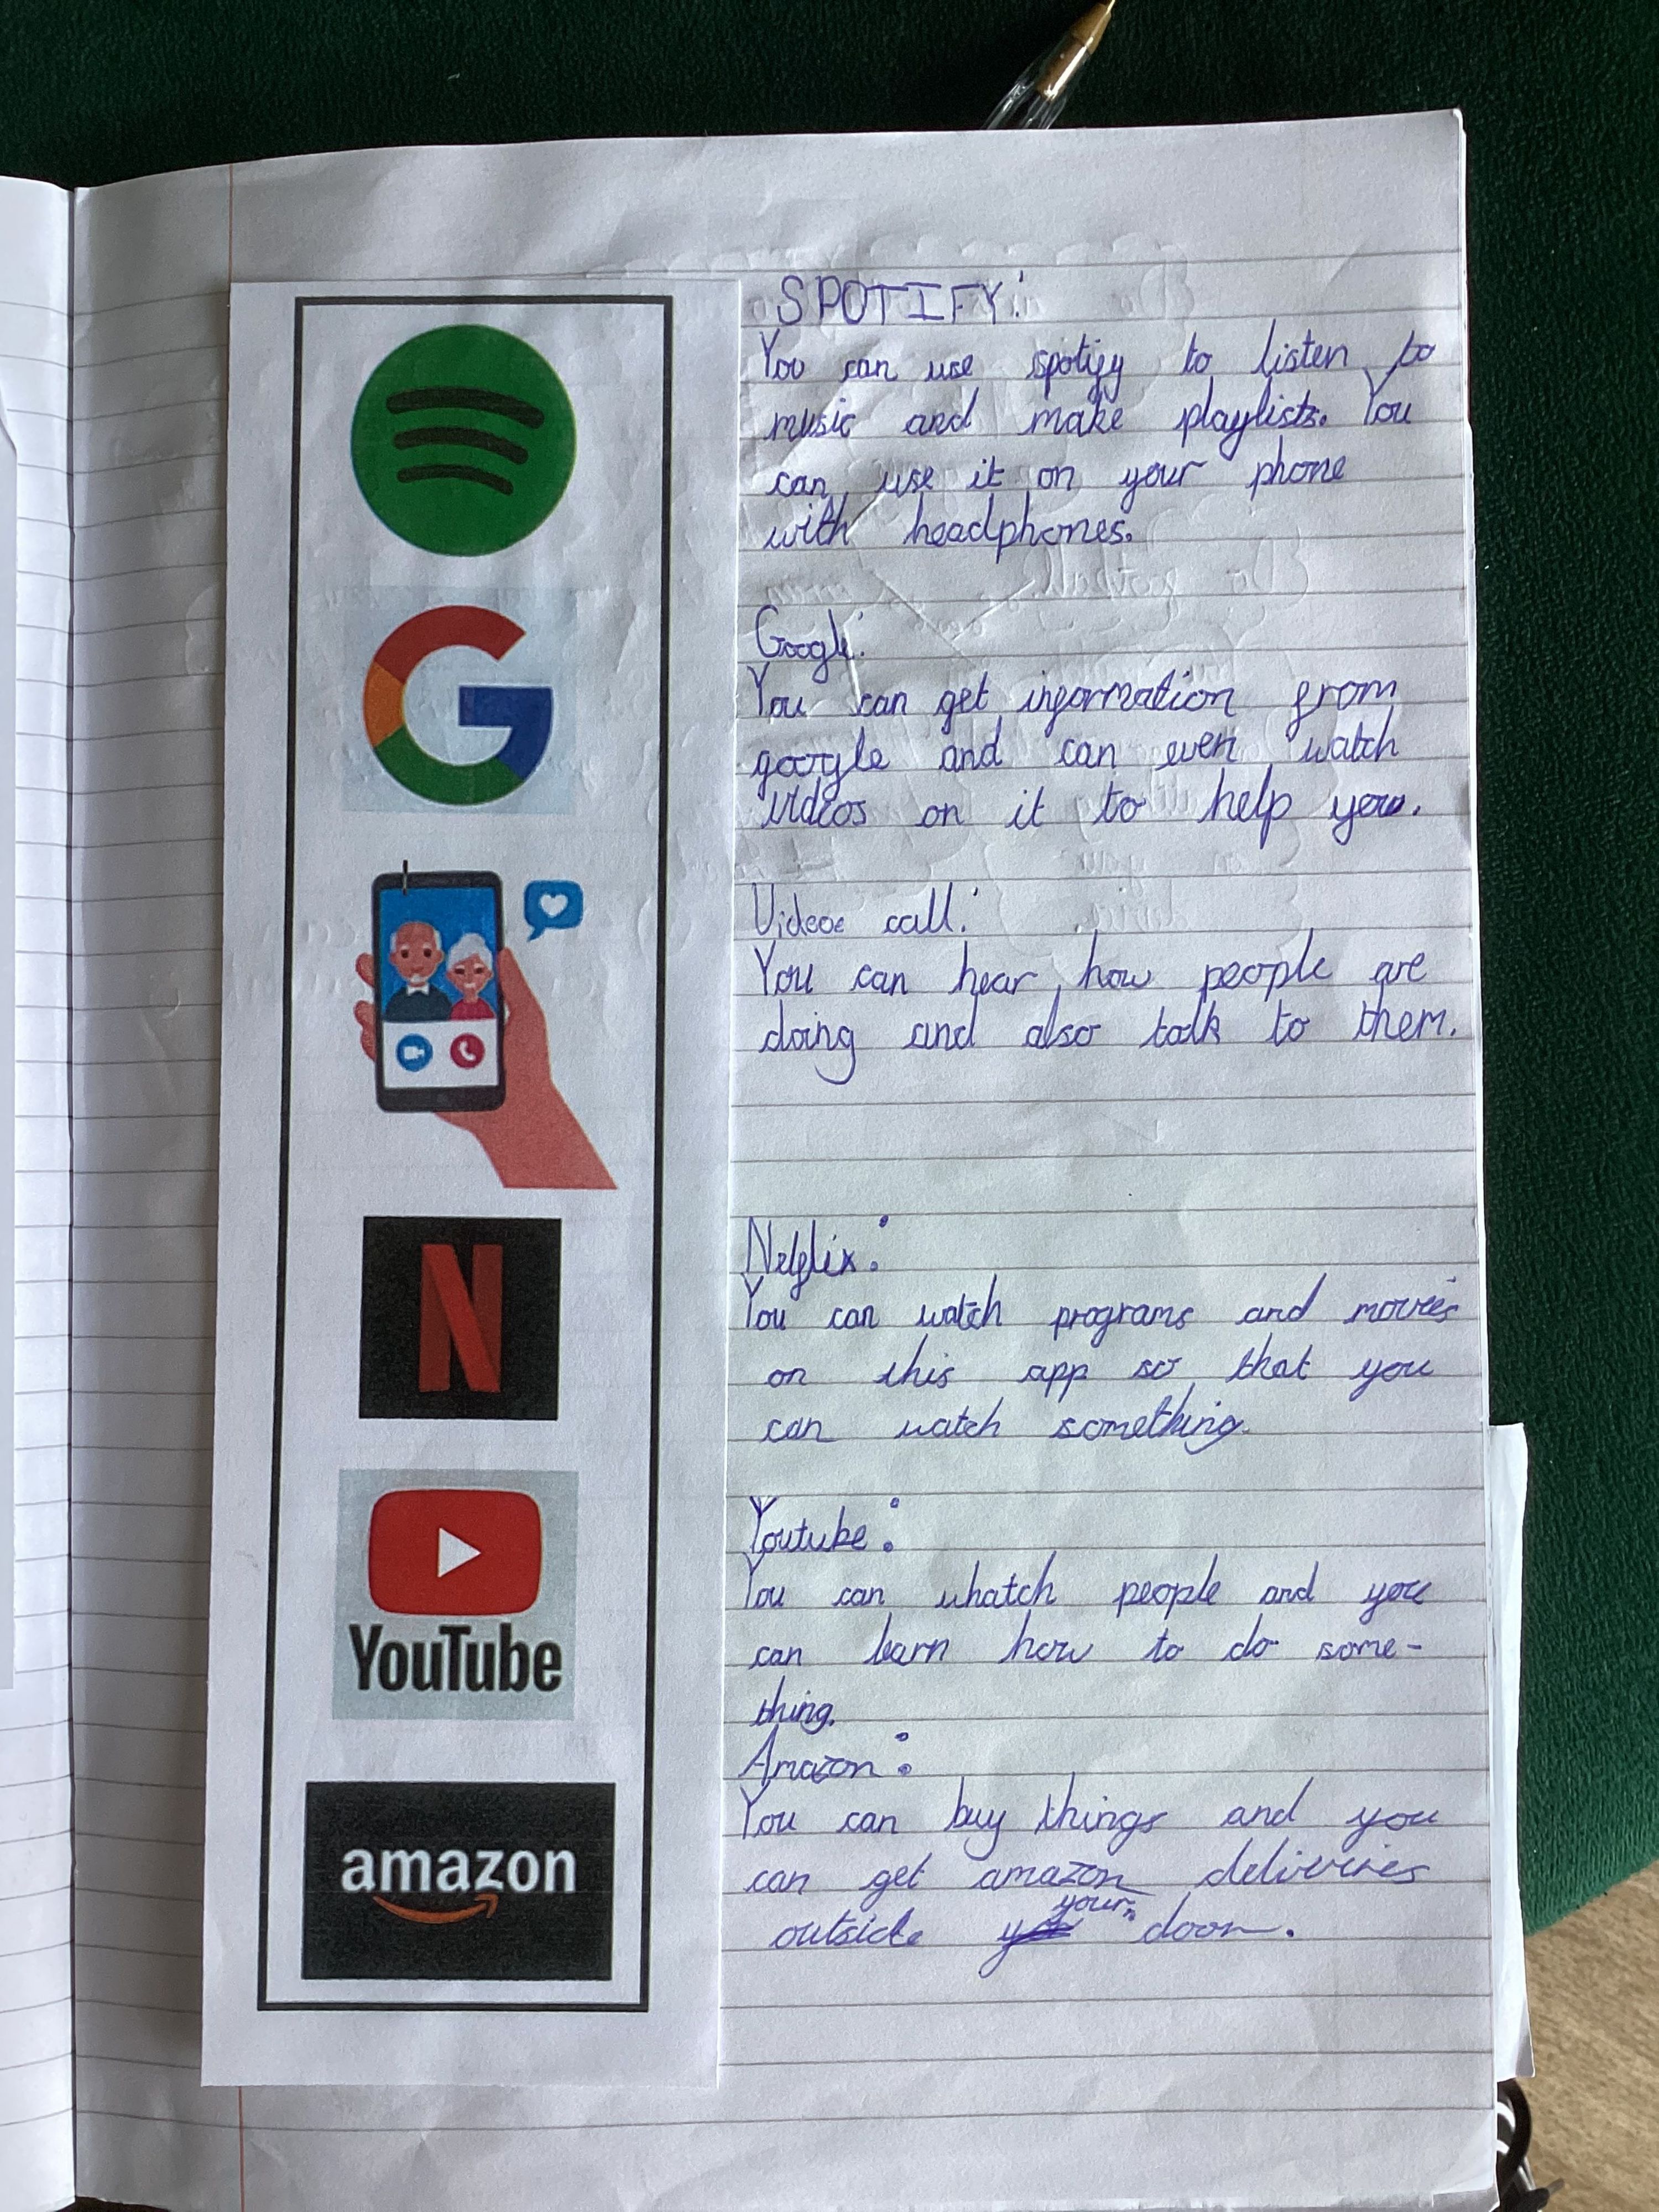 SPOTIFY:
You can use spotify to listen to
music and make playlists. You
can use it on your phone
with headphones.
Google:
You can get information from
google and can even watch
videos on it to help you.
Videoe call:
You can hear how people are
doing and also talk to them.
Netflix:
You can watch programs and movies
on this app so that you
can watch something.
YouTube
Youtube:
You can whatch people and you
can learn how to do some-
thing.
amazon
Amazon:
You can buy things and you
can get amazon deliveries
outside your door.